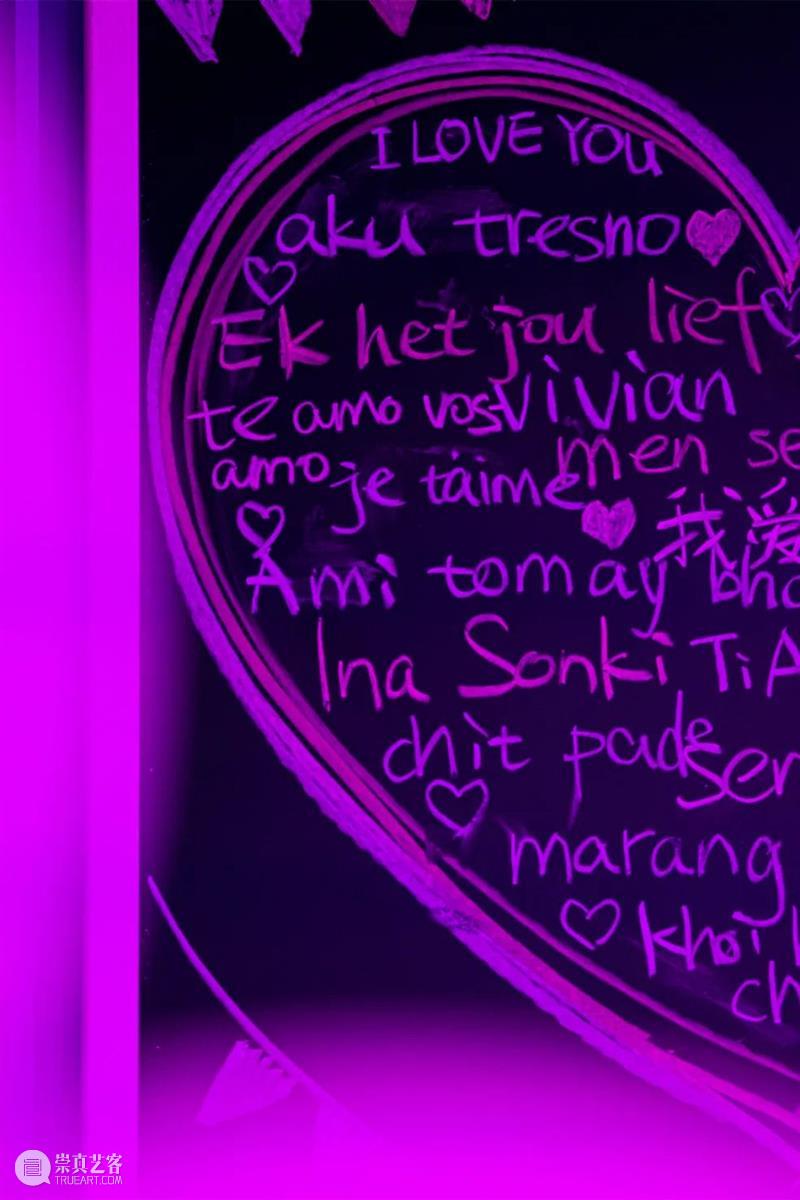 I LOVE YOU
aku tresno
Ek het jou lief
te amo vos vivian
amo je t'aime men se
我爱
Ami tomay bho
Ina Sonki Ti A
chit pade ser
marang
khoi
ch
崇真艺客
TRUEART.COM